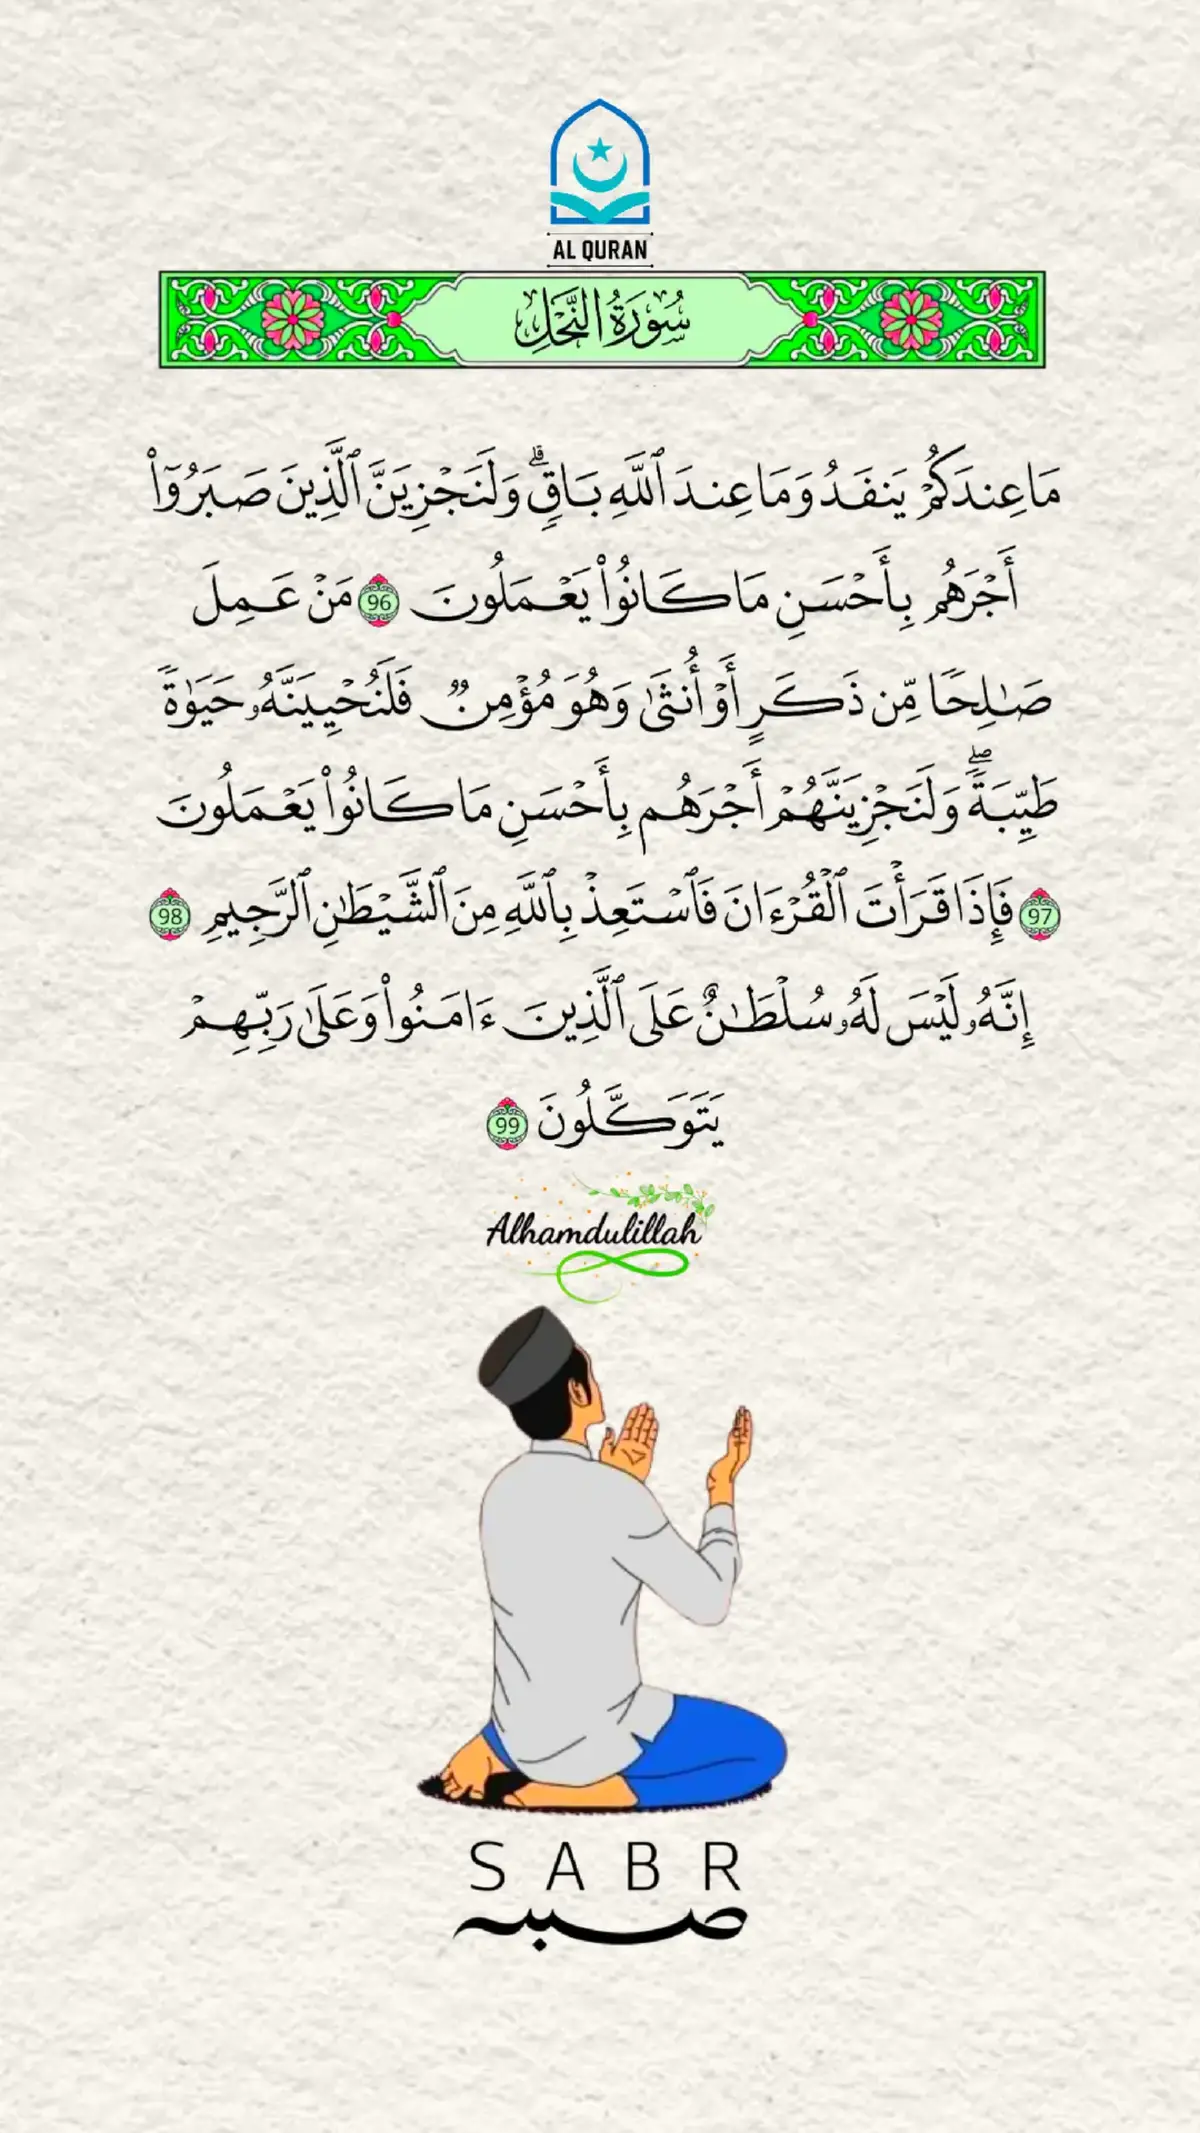 AL QURAN
سُورَةُ النَّحْلِ
مَا عِندَكُمْ يَنفَدُ وَمَا عِندَ ٱللَّهِ بَاقٍۗ وَلَنَجْزِيَنَّ ٱلَّذِينَ صَبَرُوٓا۟
أَجْرَهُم بِأَحْسَنِ مَا كَانُوا۟ يَعْمَلُونَ 96 مَنْ عَمِلَ
صَـٰلِحًا مِّن ذَكَرٍ أَوْ أُنثَىٰ وَهُوَ مُؤْمِنٌ فَلَنُحْيِيَنَّهُۥ حَيَوٰةً
طَيِّبَةًۖ وَلَنَجْزِيَنَّهُمْ أَجْرَهُم بِأَحْسَنِ مَا كَانُوا۟ يَعْمَلُونَ
97 فَإِذَا قَرَأْتَ ٱلْقُرْءَانَ فَٱسْتَعِذْ بِٱللَّهِ مِنَ ٱلشَّيْطَـٰنِ ٱلرَّجِيمِ 98
إِنَّهُۥ لَيْسَ لَهُۥ سُلْطَـٰنٌ عَلَى ٱلَّذِينَ ءَامَنُوا۟ وَعَلَىٰ رَبِّهِمْ
يَتَوَكَّلُونَ 99
Alhamdulillah
SABR